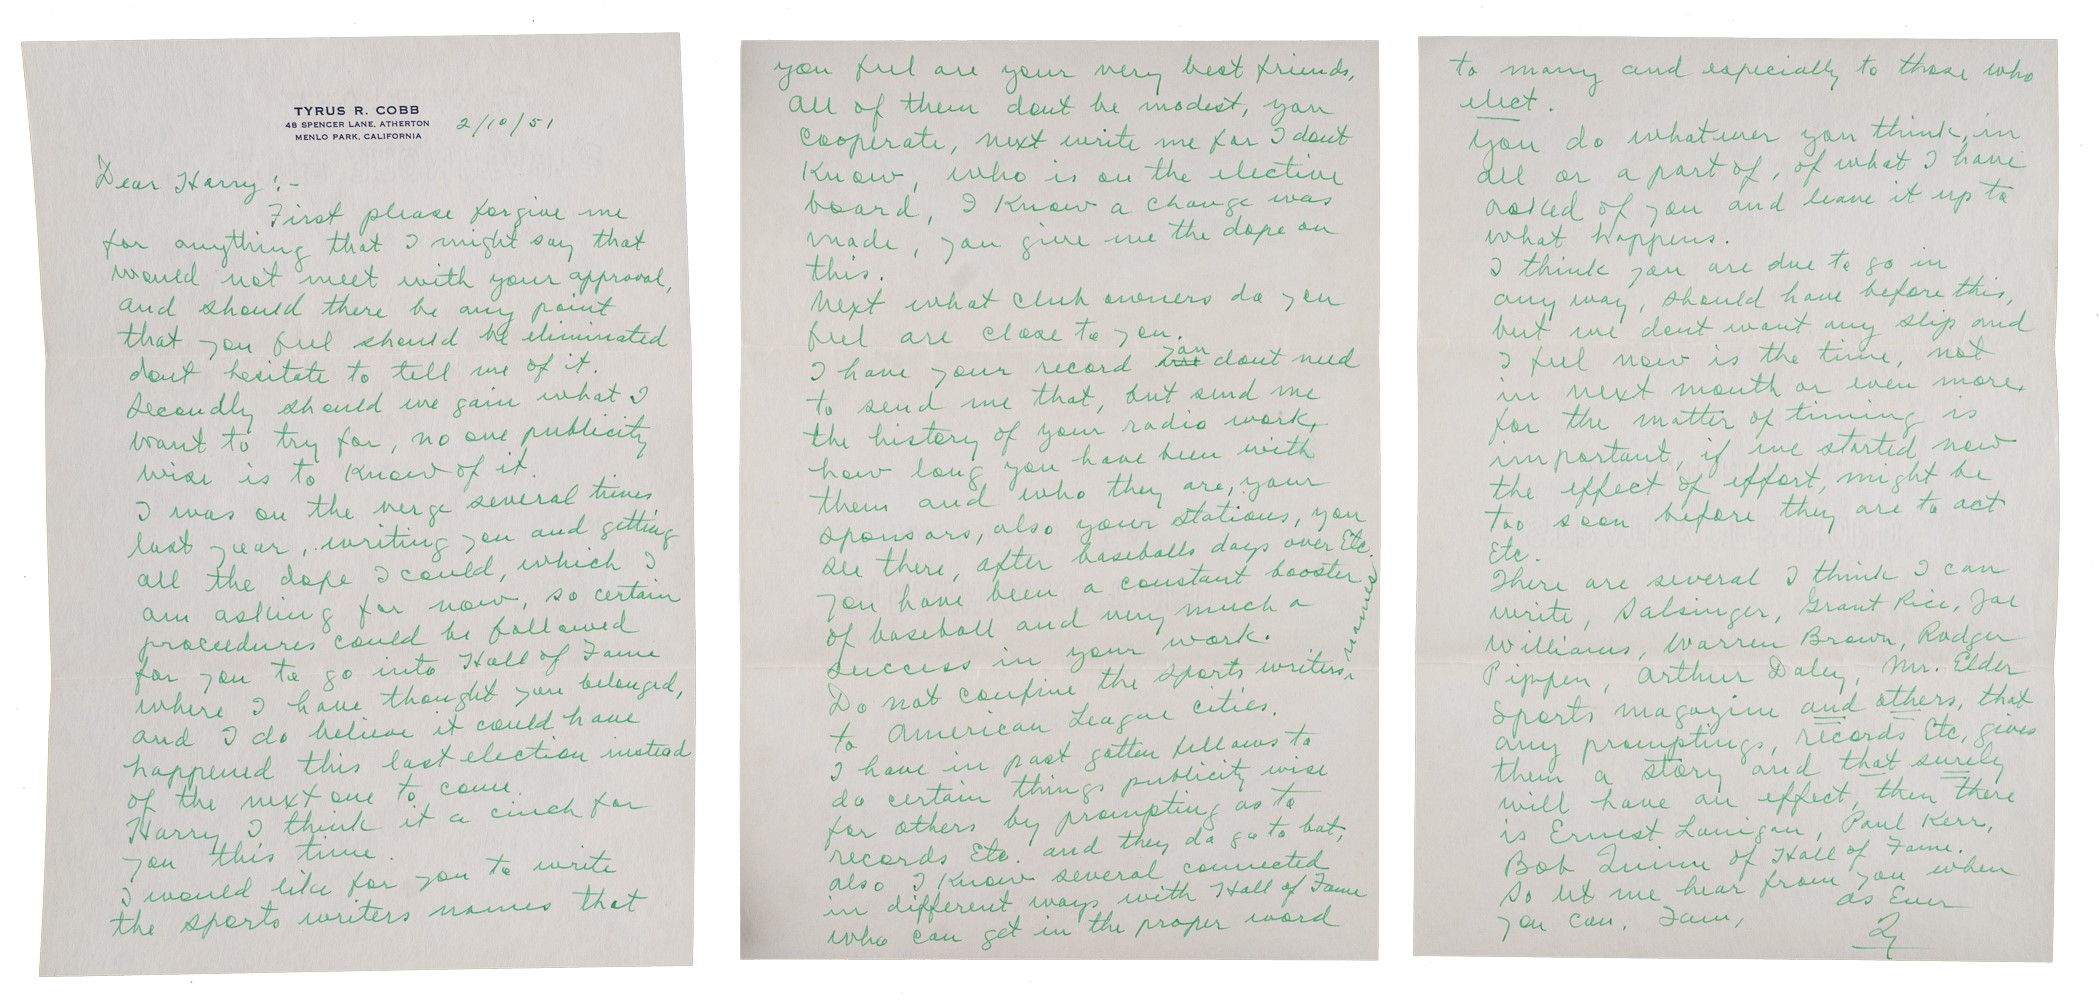 TYRUS R. COBB
48 SPENCER LANE, ATHERTON
MENLO PARK, CALIFORNIA
2/10/51
Dear Harry:-
First please forgive me
for anything that I might say that
would not meet with your approval,
and should there be any point
that you feel should be eliminated
dont hesitate to tell me of it.
Secondly should we gain what I
want to try for, no one publicity
wise is to know of it.
I was on the verge several times
last year, writing you and getting
all the dope I could, which I
am asking for now, so certain
proceedures could be followed
for you to go into Hall of Fame
where I have thought you belonged,
and I do believe it could have
happened this last election instead
of the next one to come.
Harry I think it a cinch for
you this time.
I would like for you to write
the sports writers names that
you feel are your very best friends,
all of them dont be modest, you
cooperate, next write me for I dont
know, who is on the elective
board, I know a change was
made, you give me the dope on
this.
Next what club owners do you
feel are close to you.
I have your record you dont need
to send me that, but send me
the history of your radio work,
how long you have been with
them and who they are, your
sponsors, also your stations, you
see there, after baseballs days over Etc.
you have been a constant booster
of baseball and very much a
success in your work.
Do not confine the sports writers, names
to American League cities.
I have in past gotten fellows to
do certain things publicity wise
for others by prompting as to
records Etc. and they do go to bat,
also I know several connected
in different ways with Hall of Fame
who can get in the proper word
to many and especially to those who
elect.
You do whatever you think, in
all or a part of, of what I have
asked of you and leave it up to
what happens.
I think you are due to go in
any way, should have before this,
but we dont want any slip and
I feel now is the time, not
in next month or even more,
for the matter of timing is
important, if we started now
the effect of effort, might be
too soon before they are to act
Etc.
There are several I think I can
write, Salsinger, Grant Rice, Joe
Williams, Warren Brown, Rodger
Pippen, Arthur Daley, Mr. Elder
Sports magazine and others, that
any promptings, records Etc, gives
them a story and that surely
will have an effect, then there
is Ernest Lanigan, Paul Kerr,
Bob Quinn of Hall of Fame.
So let me hear from you when
you can, I am,
as Ever
Ty